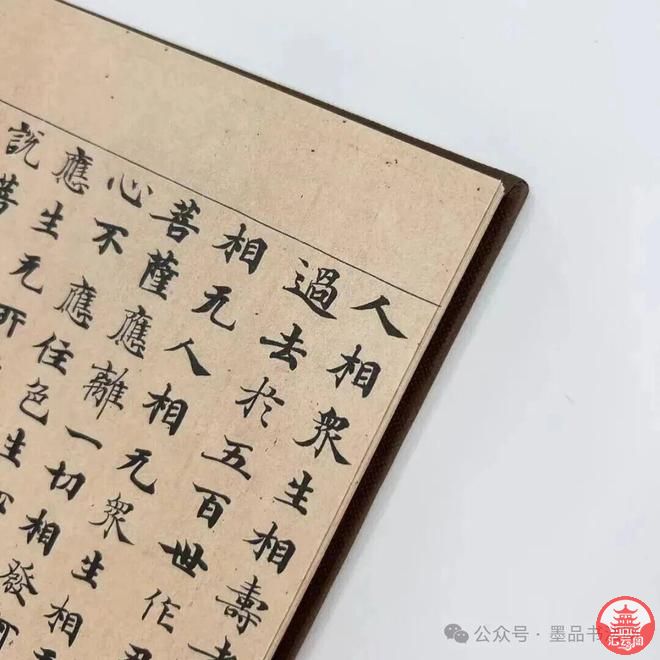 人相衆生相壽者
過去扵五百世作
相无人相无衆生相
菩薩應離一切相發
心不應住色生
應生无所
說菩
公众号·墨品书法
汇云阁